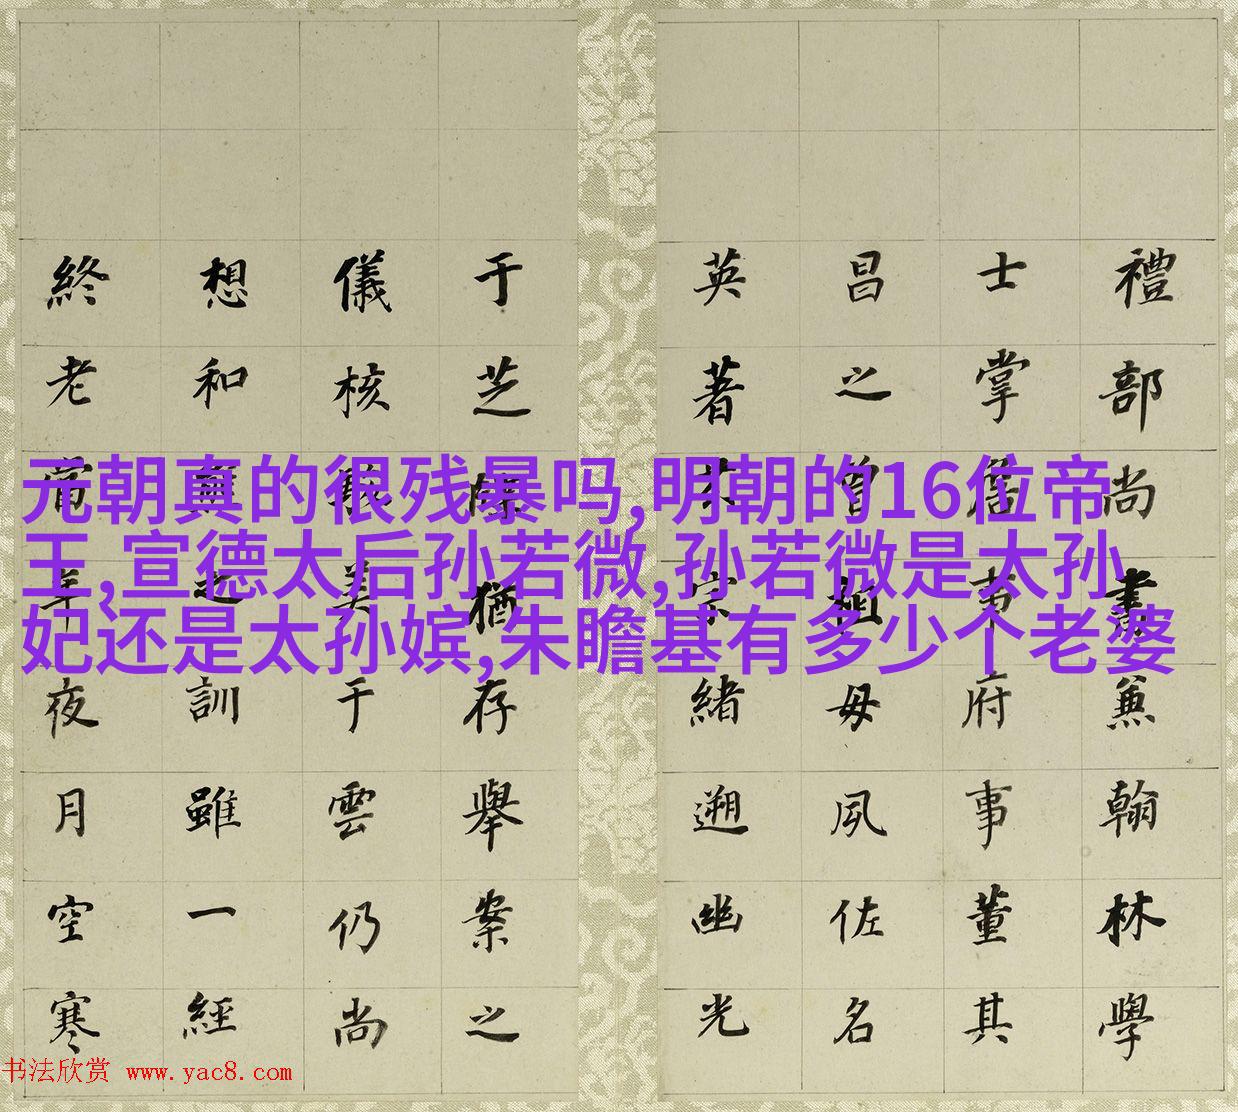 元朝真的很残暴吗,明朝的16位帝
王,宣德太后孙若微,孙若微是太孙
妃还是太孙嫔,朱瞻基有多少个老婆
禮部尚書兼翰林學
士掌詹事府事董其
昌之曾祖母夙佐名
英著宗緒遡幽光
于芝猶存舉案之
儀核美于雲仍尚
想和之訓雖一經
終老當年夜月空寒
书法欣赏 www.yac8.com